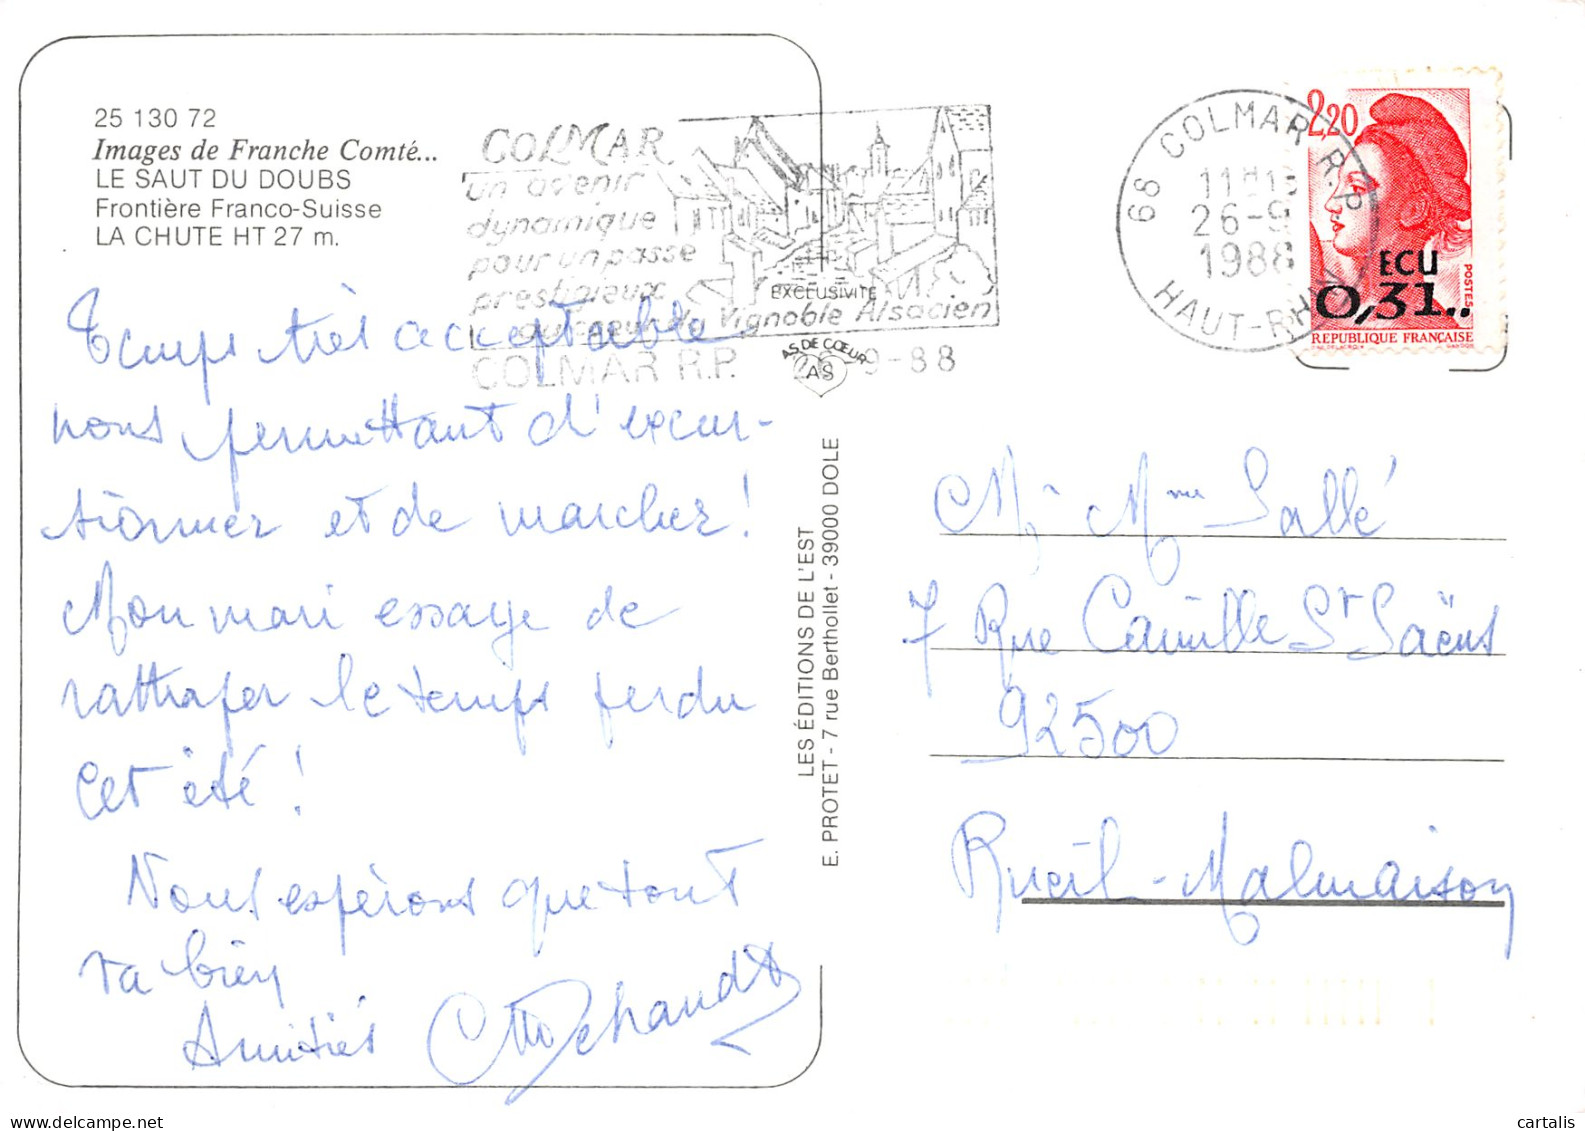 25 130 72
Images de Franche Comté...
LE SAUT DU DOUBS
Frontière Franco-Suisse
LA CHUTE HT 27 m.
COLMAR
un avenir
dynamique
pour un passe
prestigieux
au coeur du Vignoble Alsacien
COLMAR R.P. 26-9-88
68 COLMAR R.P.
11H15
26-9
1988
HAUT-RHIN
2,20
ECU
0,31..
POSTES
REPUBLIQUE FRANÇAISE
EXCLUSIVITÉ
AS DE CŒUR
AS
Temps très acceptable
nous permettant d'excur-
sionner et de marcher!
Mon mari essaye de
rattraper le temps perdu
cet été!
Nous espérons que tout
va bien
Amitiés
LES ÉDITIONS DE L'EST
E. PROTET - 7 rue Berthollet - 39000 DOLE
M. Mme Sallé
7 Rue Camille St Saëns
92500
Rueil-Malmaison
delcampe.net
cartalis